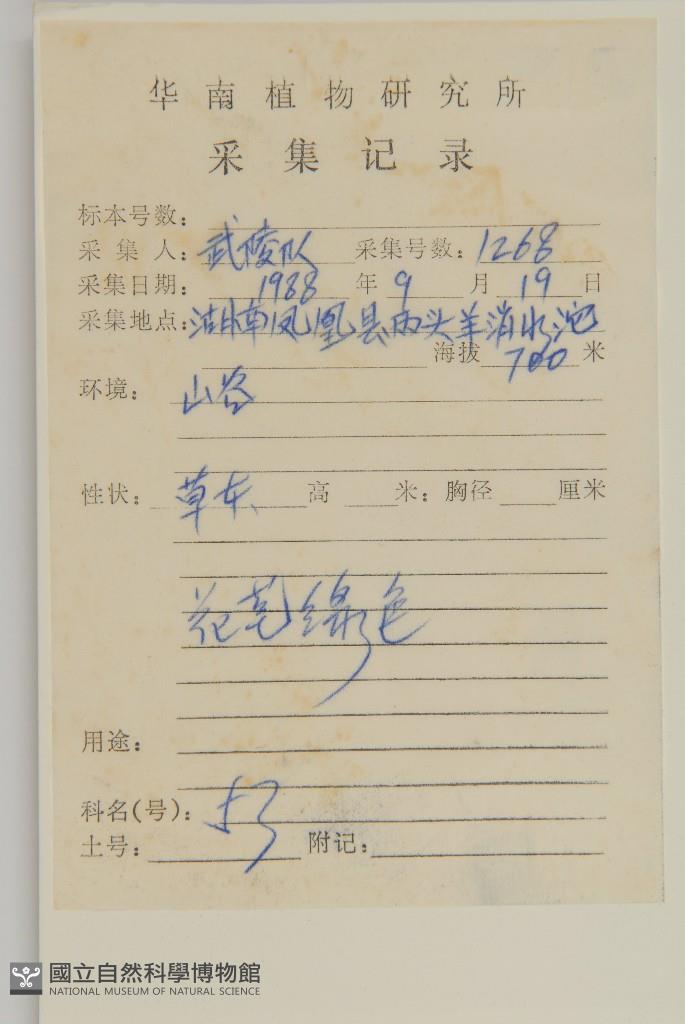 华南植物研究所
采集记录
标本号数：
采集人：武陵队 采集号数：1268
采集日期：1988年9月19日
采集地点：湖南凤凰县两头羊消水沱
海拔700米
环境：山谷
性状：草本 高 米：胸径 厘米
花 绿色
用途：
科名(号)：
土号： 附记：
國立自然科學博物館
NATIONAL MUSEUM OF NATURAL SCIENCE